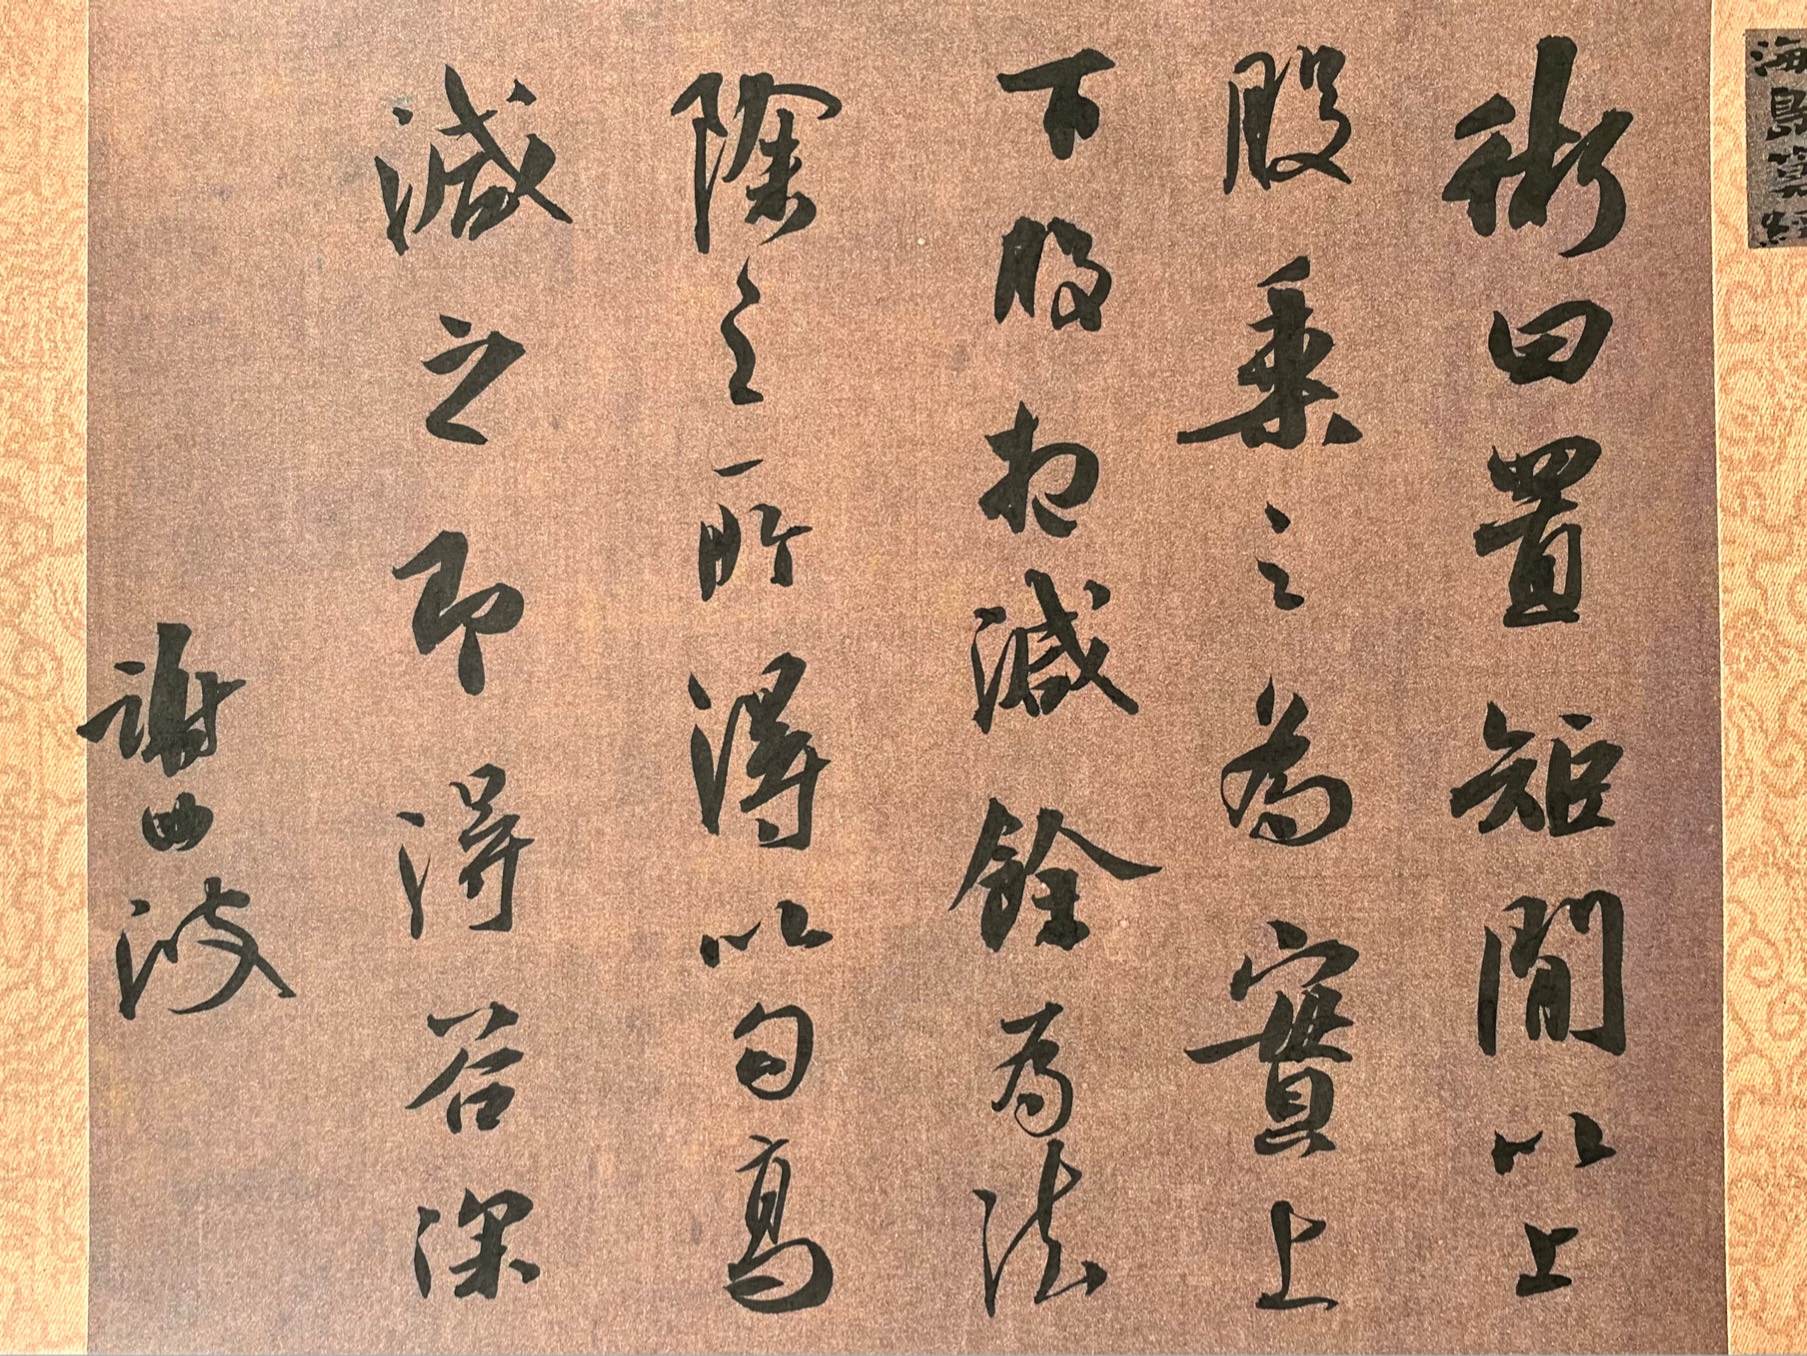 海島算經
術曰置矩間以上
股乘之為實上
下股相減餘為法
除之所得以句高
減之即得谷深
謝曲波